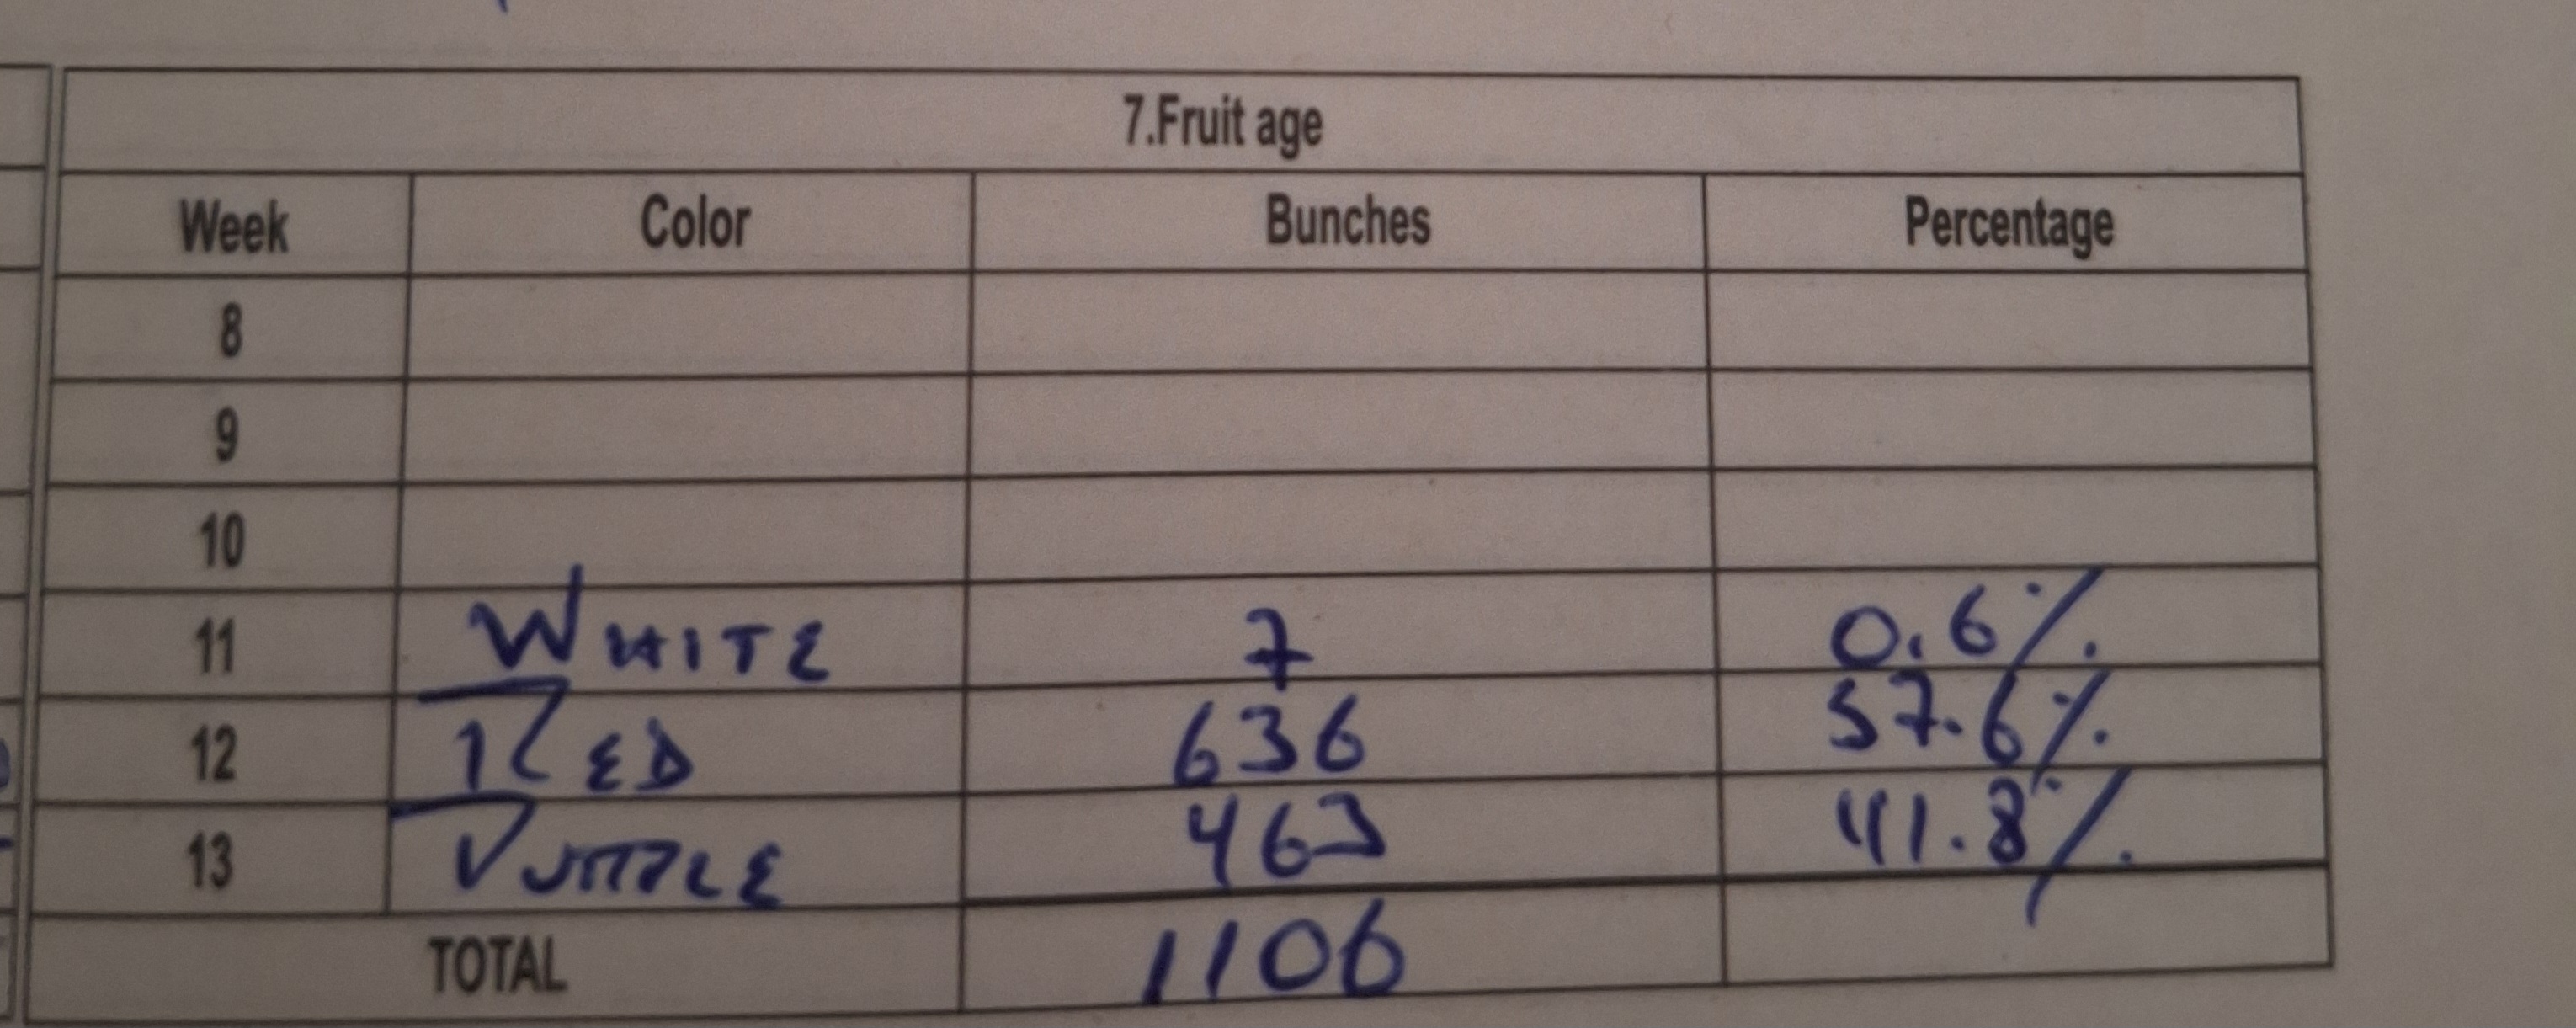 7.Fruit age
Week Color Bunches Percentage
8
9
10
11 WHITE 7 0.6%
12 RED 636 57.6%
13 PURPLE 463 41.8%
TOTAL 1106